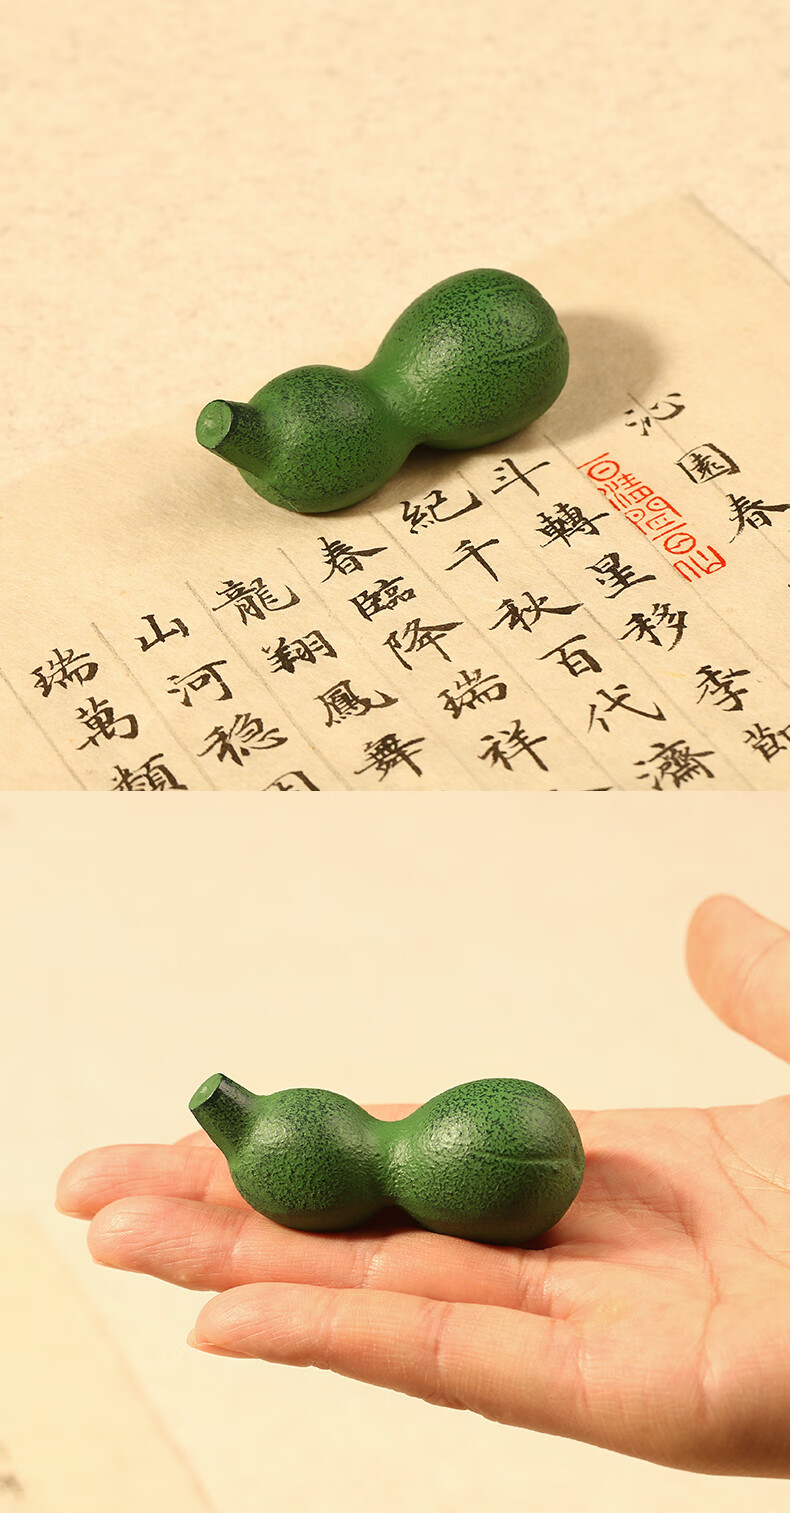 沁園春
斗轉星移季
紀千秋百代濟
春臨降瑞祥
龍翔鳳舞
山河稳
瑞萬類